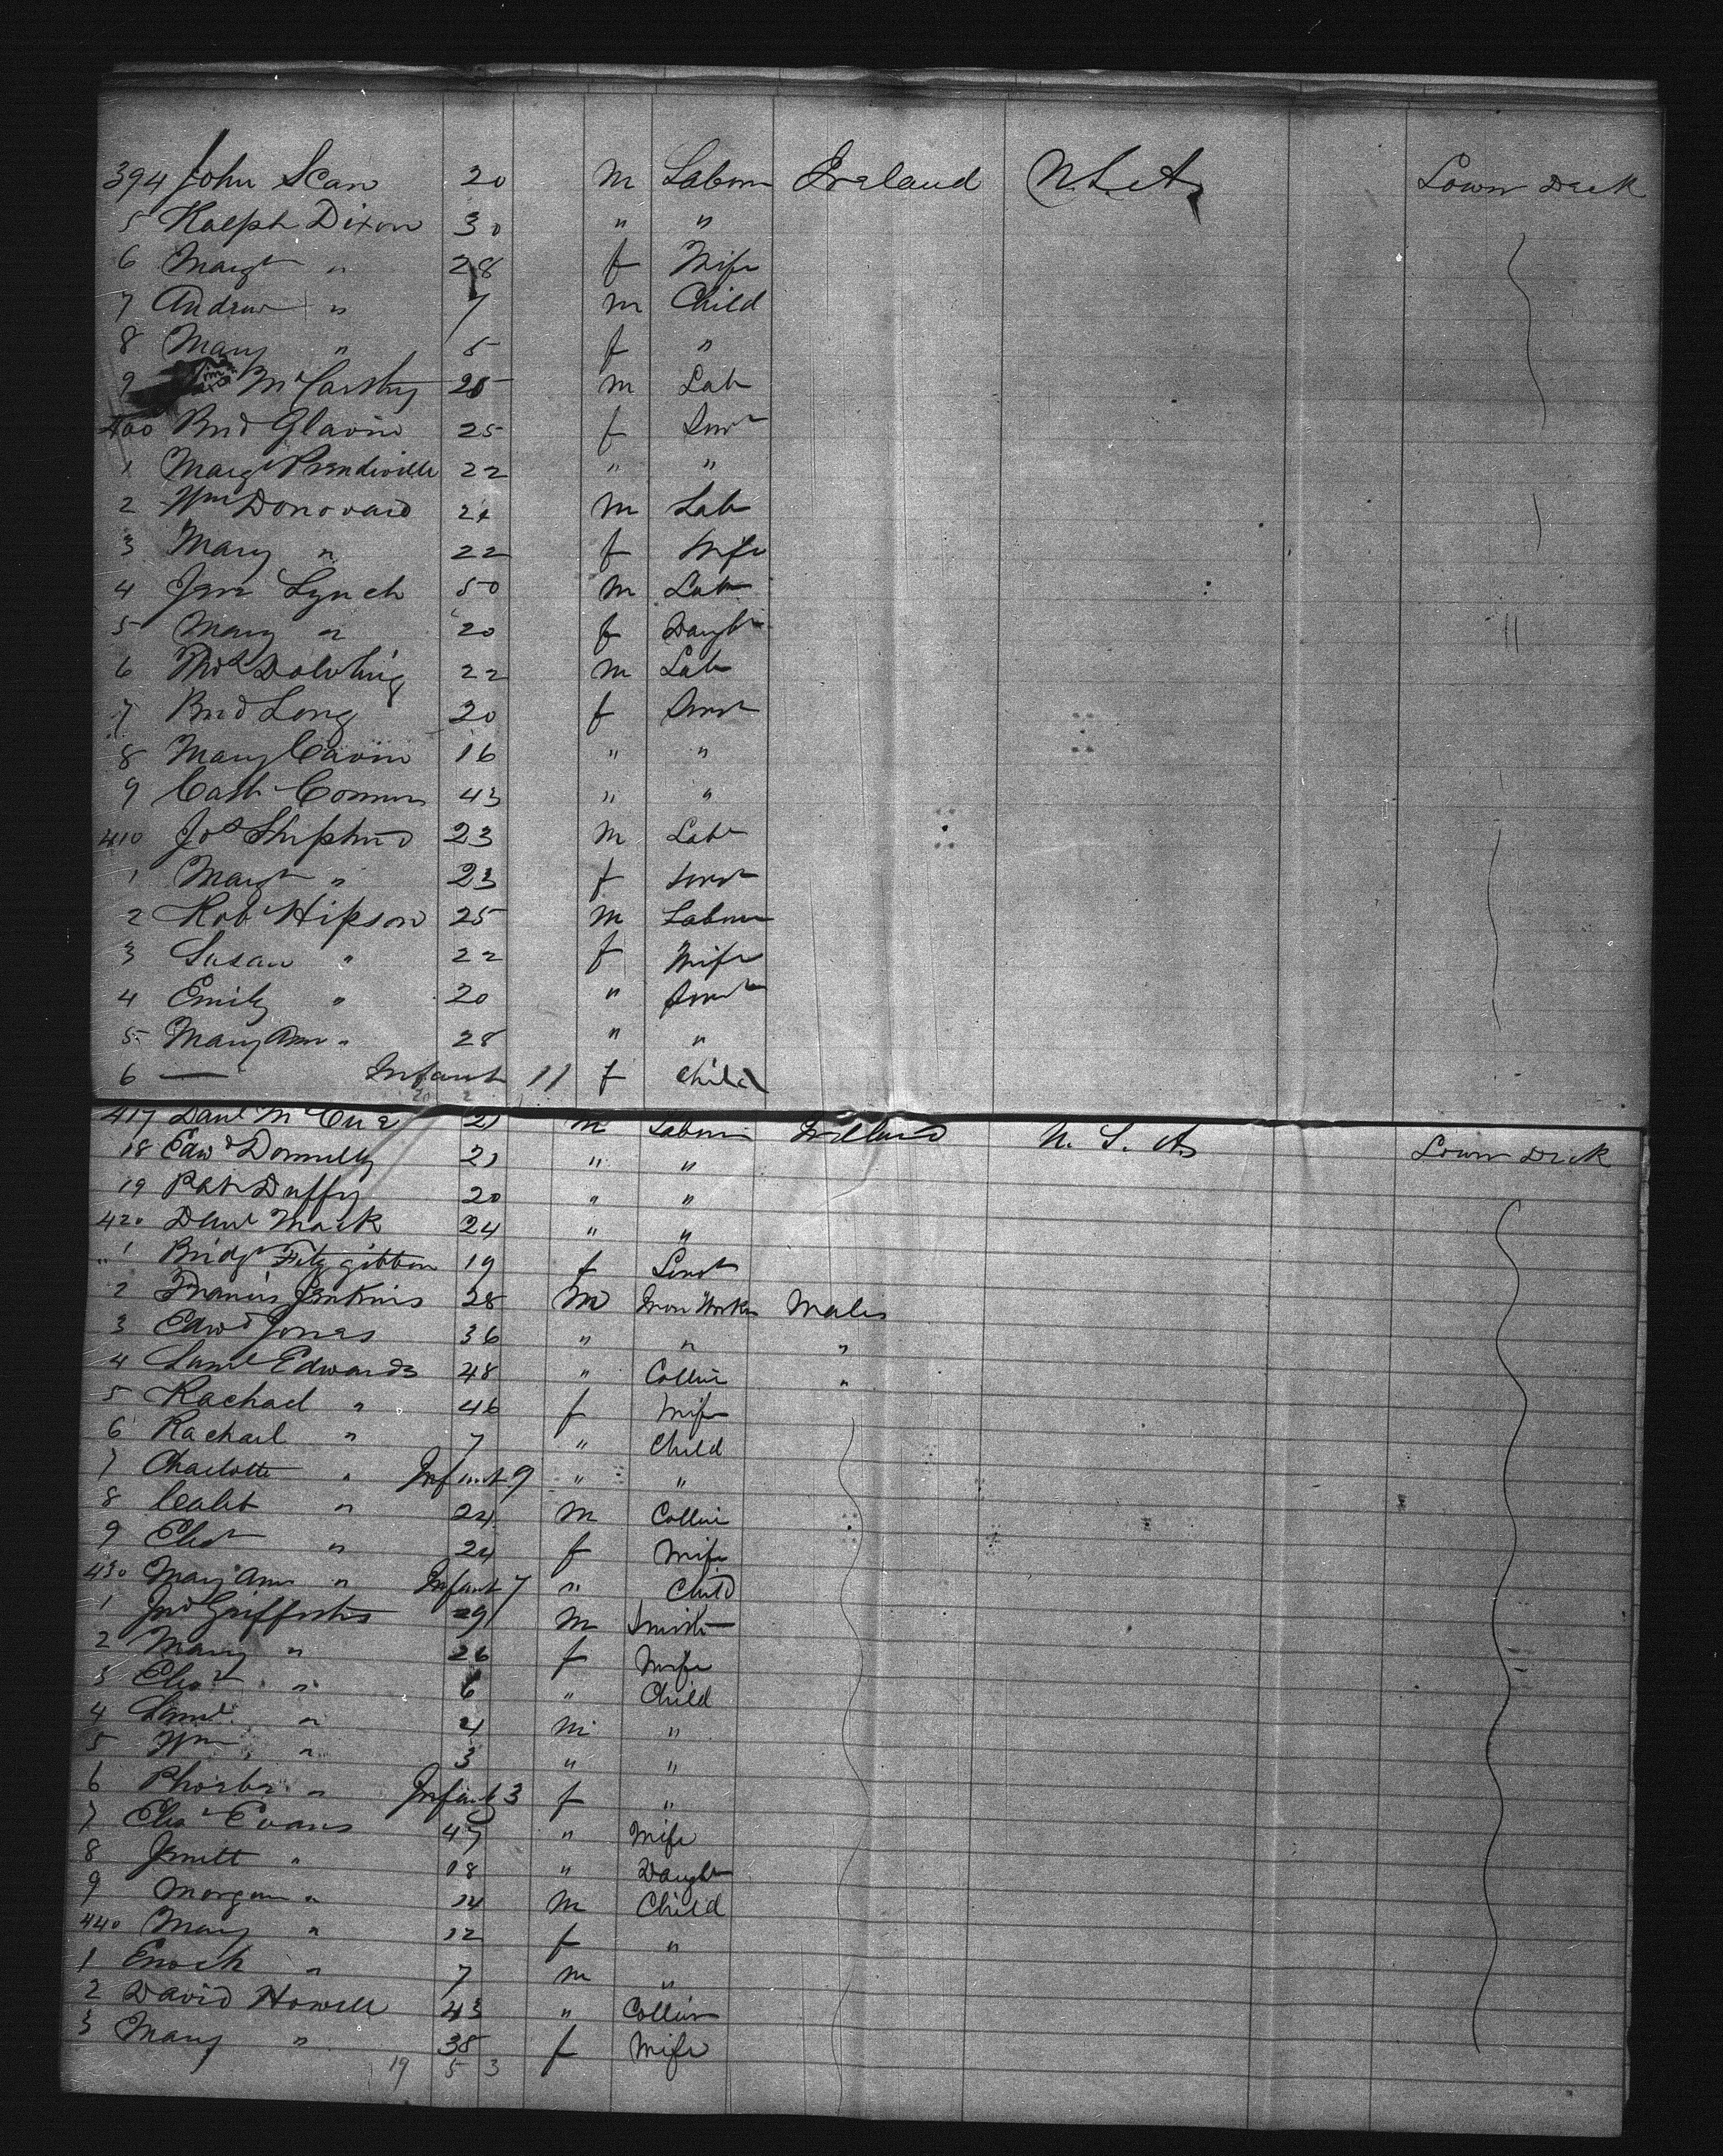 394 John Scan 20 m Labour Ireland U.S.A. Lower Deck
5 Ralph Dixon 30 " "
6 Margt " 28 f Wife
7 Andrew " 7 m Child
8 Mary " 5 f "
9 McCarthy 25 m Lab
400 Brid Glavin 25 f Servt
1 Margt Prendiville 22 " "
2 Wm Donovan 24 m Lab
3 Mary " 22 f Wife
4 Lynch 50 m Lab
5 Mary " 20 f Daughtr
6 Thos Dowling 22 m Lab
7 Brid Long 20 f Servt
8 Mary Cavin 16 " "
9 Cath Connors 43 " "
410 Jos Shepherd 23 m Labr
1 Margt " 23 f Servt
2 Robt Hipson 25 m Labour
3 Susan " 22 f Wife
4 Emily " 20 " Servt
5 Mary Ann " 28 " "
6 — Infant 11 f Child
417 Danl McCue 21 m Labour Ireland U.S.A. Lower Deck
18 Edwd Donnelly 21 " "
19 Pat Duffy 20 " "
420 Danl Mack 24 " "
" 1 Bridgt Fitzgibbon 19 f Servt
2 Francis Jenkins 28 m Iron Worker Wales
3 Edwd Jones 36 " " "
4 Saml Edwards 48 " Collier "
5 Rachael " 46 f Wife
6 Rachael " 7 " Child
7 Charlotte " Infant 9 " "
8 Caleb " 24 m Collier
9 Elizt " 24 f Wife
430 Mary Ann " Infant 7 " Child
1 Jno Griffiths 29 m Smith
2 Mary " 26 f Wife
3 Elizt " 6 " Child
4 Saml " 4 m "
5 Wm " 3 " "
6 Phoebe " Infant 3 f "
7 Elizt Evans 47 " Wife
8 " 18 " Daught
9 Morgan " 14 m Child
440 Mary " 12 f "
1 Enoch " 7 m "
2 David Howell 43 " Collier
3 Mary " 38 f Wife
19 5 3